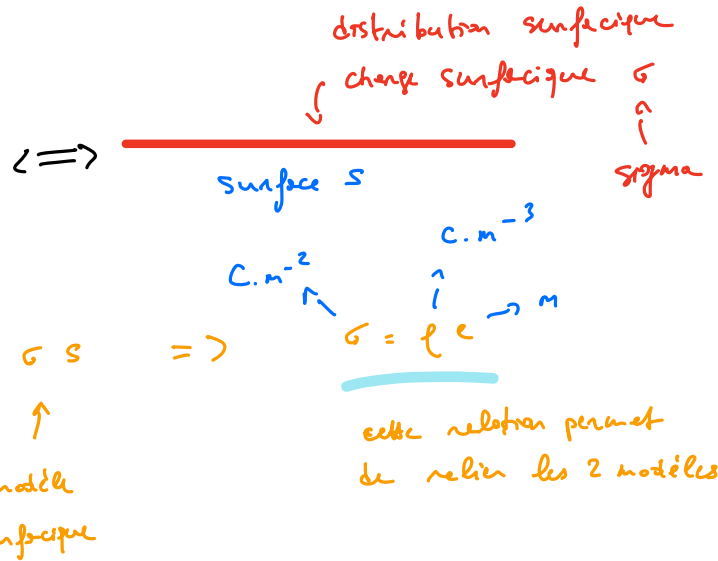 distribution surfacique
charge surfacique σ
<=>
sigma
surface S
C.m⁻³
C.m⁻²
m
σ S => σ = ρ e
cette relation permet
de relier les 2 modèles
modèle
surfacique